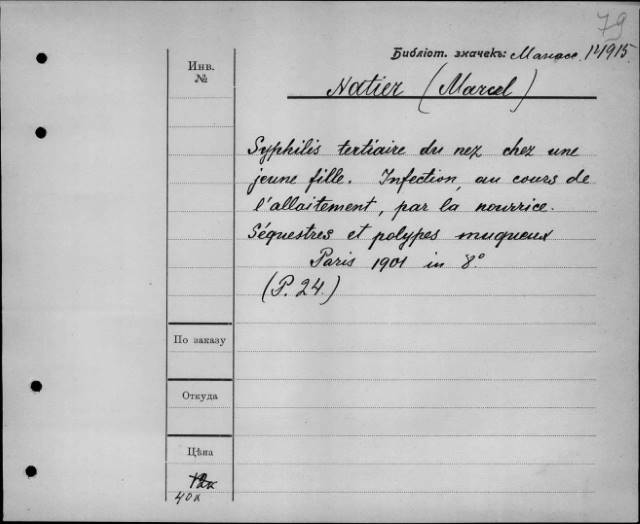 79
Библіот. значекъ: 14915
Инв.
№
Natier (Marcel)
Syphilis tertiaire du nez chez une
jeune fille. Infection, au cours de
l'allaitement, par la nourrice.
Séquestres et polypes muqueux
Paris 1901 in 8°
(P. 24.)
По заказу
Откуда
Цѣна
12к
40к